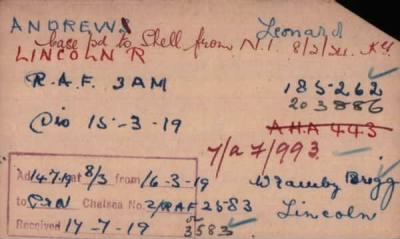 ANDREWS Leonard
Case pd to Shell from N.I. 8/2/
LINCOLN R
R.A.F. 3 AM 185262
203886
Dis 15-3-19 AHA 443
7/a 7/993
Ad 14.7.19 at 8/3 from 16-3-19 Wrawby Brigg
to Chelsea No. 2/RAF 2583 Lincoln
or
Received 17-7-19 3583